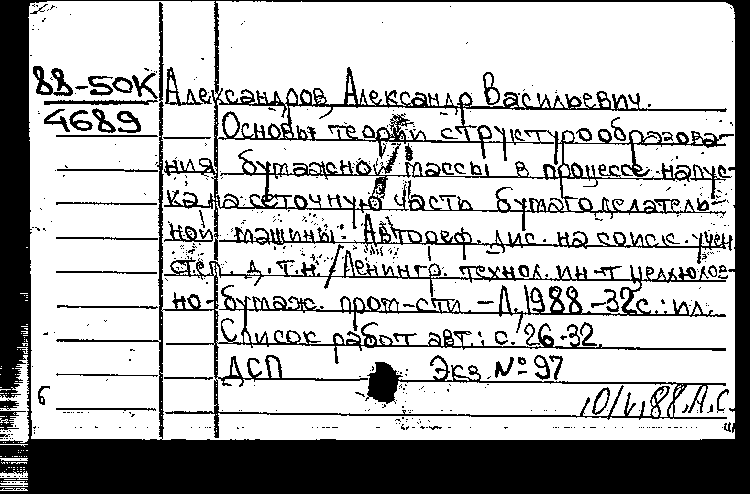 88-50К
4689
Александров, Александр Васильевич.
Основы теории структурообразова-
ния бумажной массы в процессе напус-
ка на сеточную часть бумагоделатель-
ной машины: Автореф. дис. на соиск. учен.
степ. д.т.н. / Ленингр. технол. ин-т целлюлоз-
но-бумаж. пром-сти. - Л., 1988. - 32с.: ил.
Список работ авт.: с. 26-32.
ДСП Экз №97
б
10/V,88.А.С.